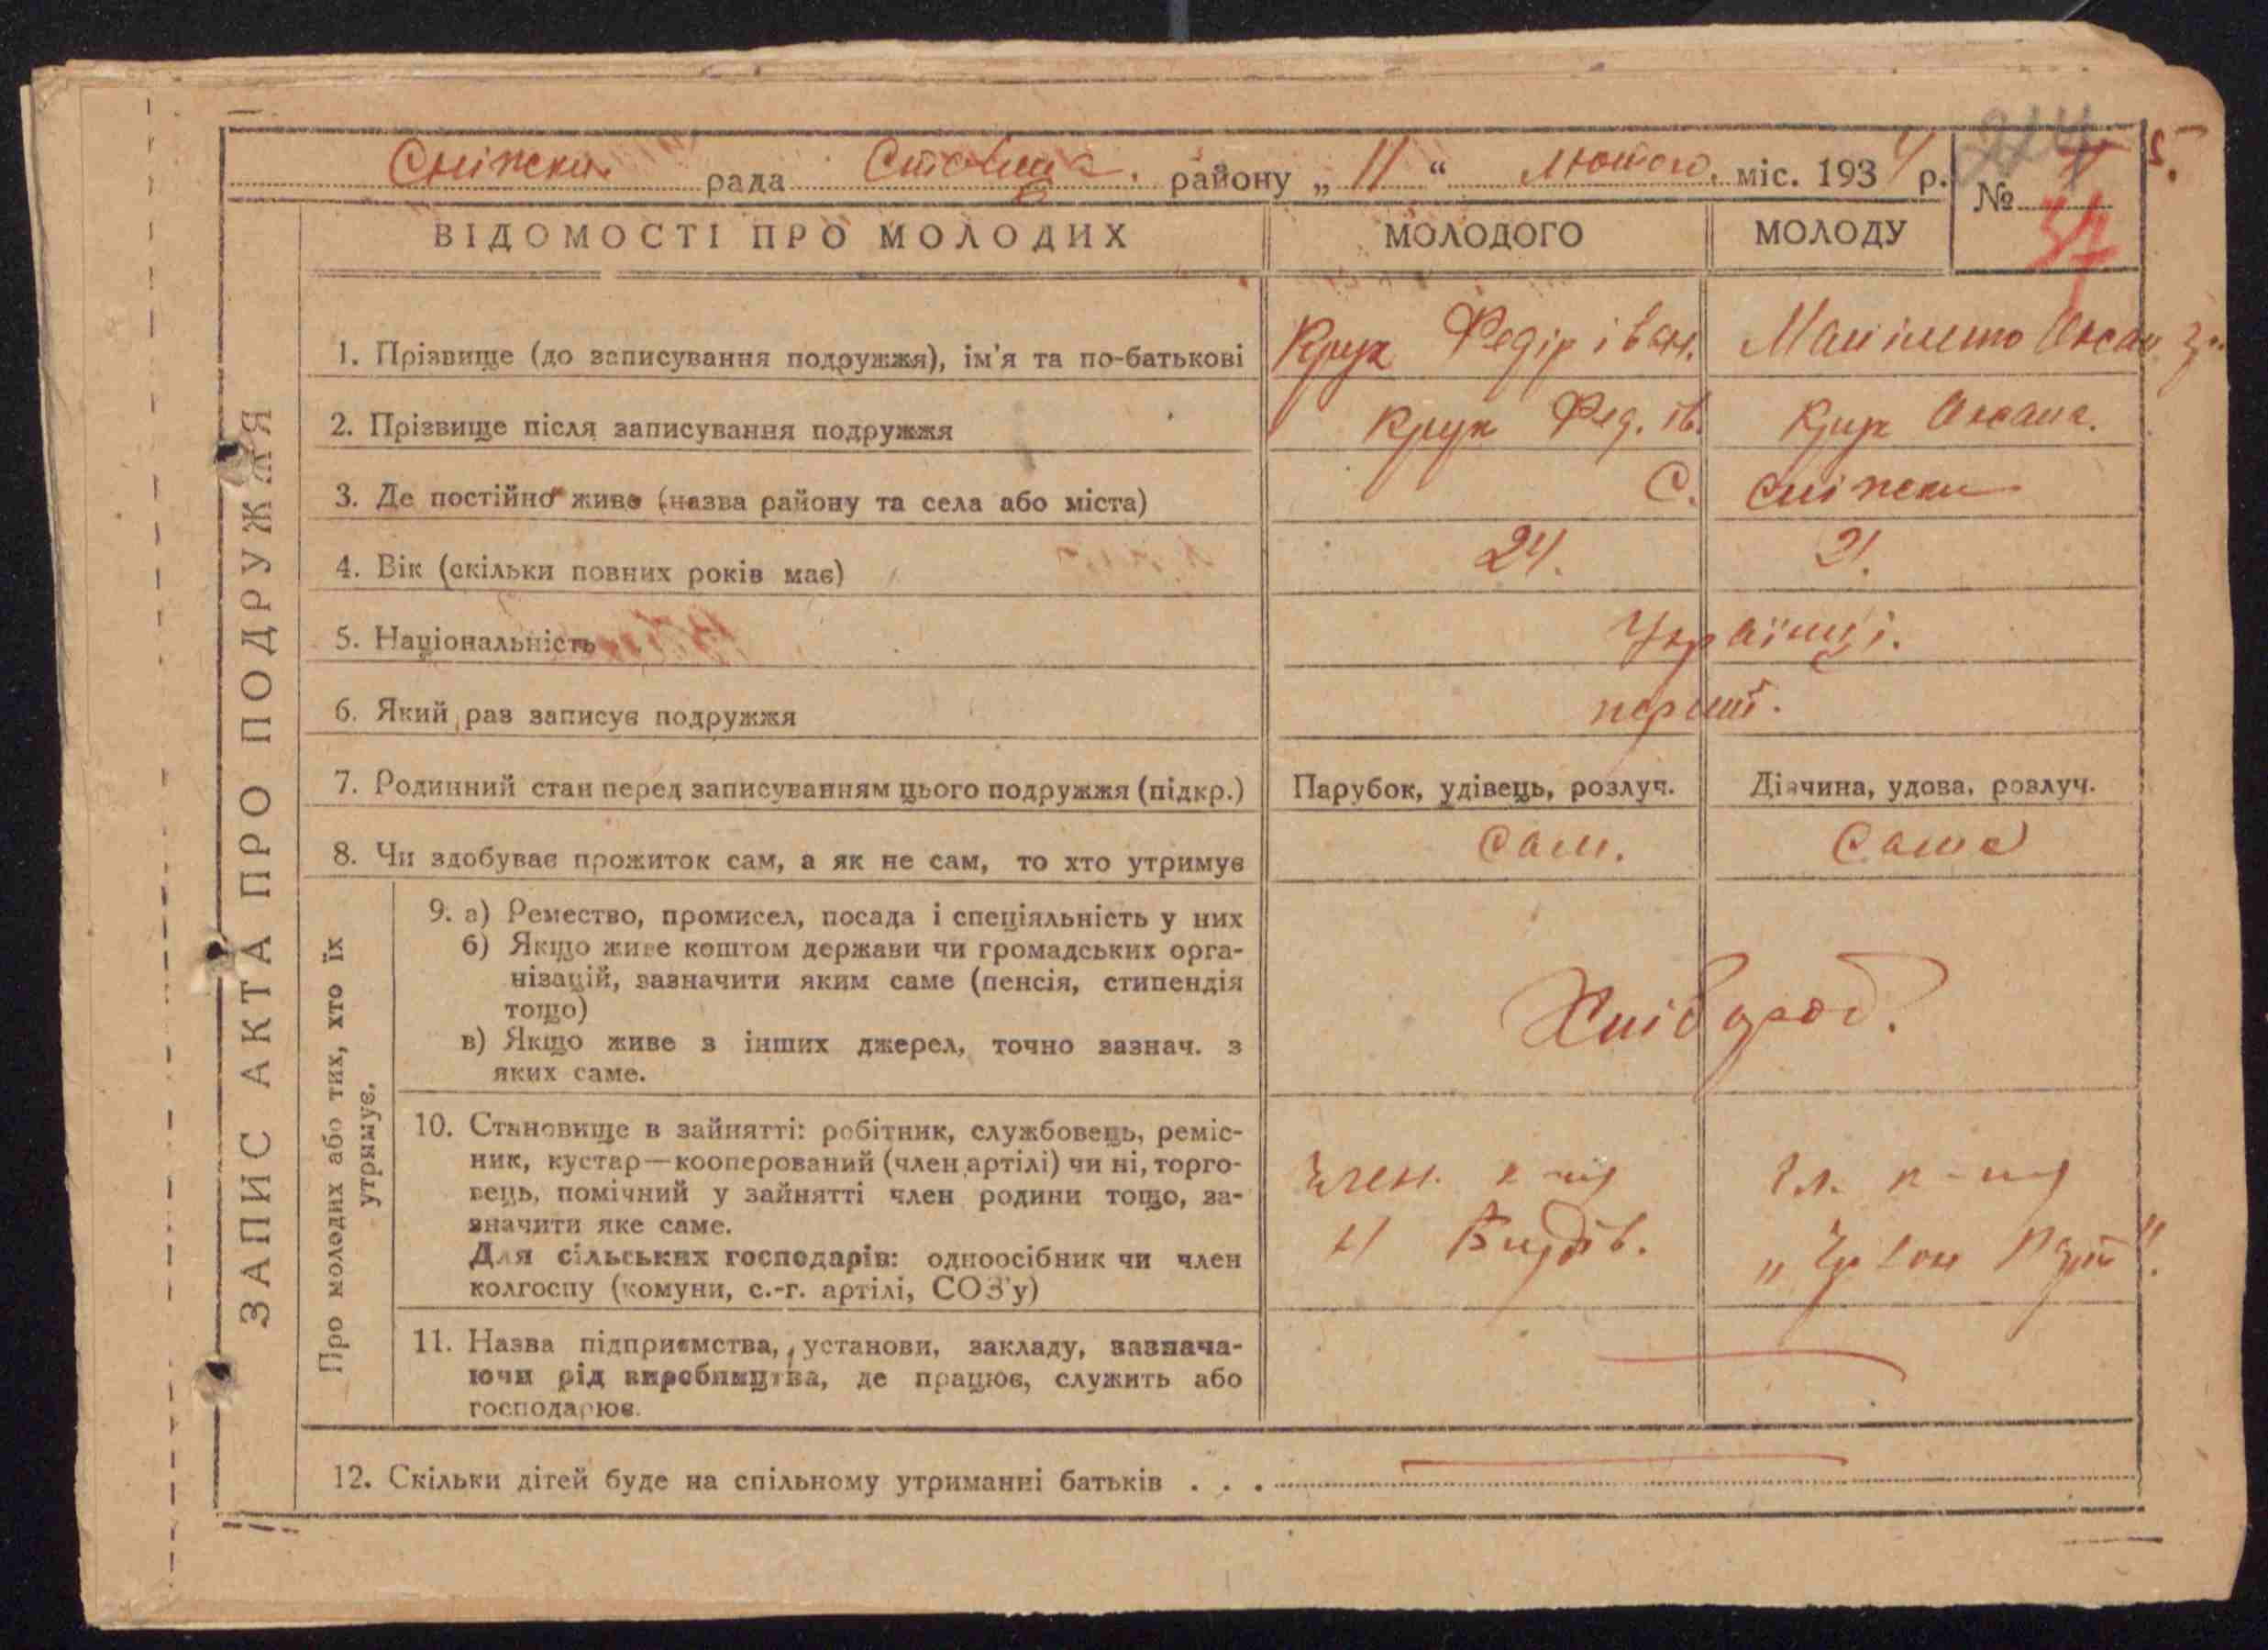 Сніжки рада Ставищ. району „ 11 “ лютого. міс. 1934 р.
№ 4
ВІДОМОСТІ ПРО МОЛОДИХ МОЛОДОГО МОЛОДУ
ЗАПИС АКТА ПРО ПОДРУЖЖЯ
1. Прізвище (до записування подружжя), ім'я та по-батькові Крук Федір Іван. Оксан
2. Прізвище після записування подружжя Крук Фед. Ів. Крук Оксана.
3. Де постійно живе (назва району та села або міста) С. Сніжки
4. Вік (скільки повних років має) 24. 21.
5. Національність Українці.
6. Який раз записує подружжя перший.
7. Родинний стан перед записуванням цього подружжя (підкр.) Парубок, удівець, розлуч. Дівчина, удова, розлуч.
8. Чи здобуває прожиток сам, а як не сам, то хто утримує Сам. Сама
Про молодих або тих, хто їх
утримує.
9. а) Ремество, промисел, посада і спеціяльність у них
б) Якщо живе коштом держави чи громадських орга-
нізацій, зазначити яким саме (пенсія, стипендія
тощо)
в) Якщо живе з інших джерел, точно зазнач. з
яких саме.
Хлібороб.
10. Становище в зайнятті: робітник, службовець, реміс-
ник, кустар—кооперований (член артілі) чи ні, торго-
вець, помічний у зайнятті член родини тощо, за-
значити яке саме.
Для сільських господарів: одноосібник чи член
колгоспу (комуни, с.-г. артілі, СОЗ'у)
член. к-пу
чл. к-пу
11. Назва підприємства, установи, закладу, зазнача-
ючи рід виробництва, де працює, служить або
господарює.
12. Скільки дітей буде на спільному утриманні батьків . . .